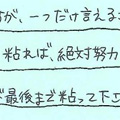 が、一つだけ言える
粘れば、絶対努力
最後まで粘って下